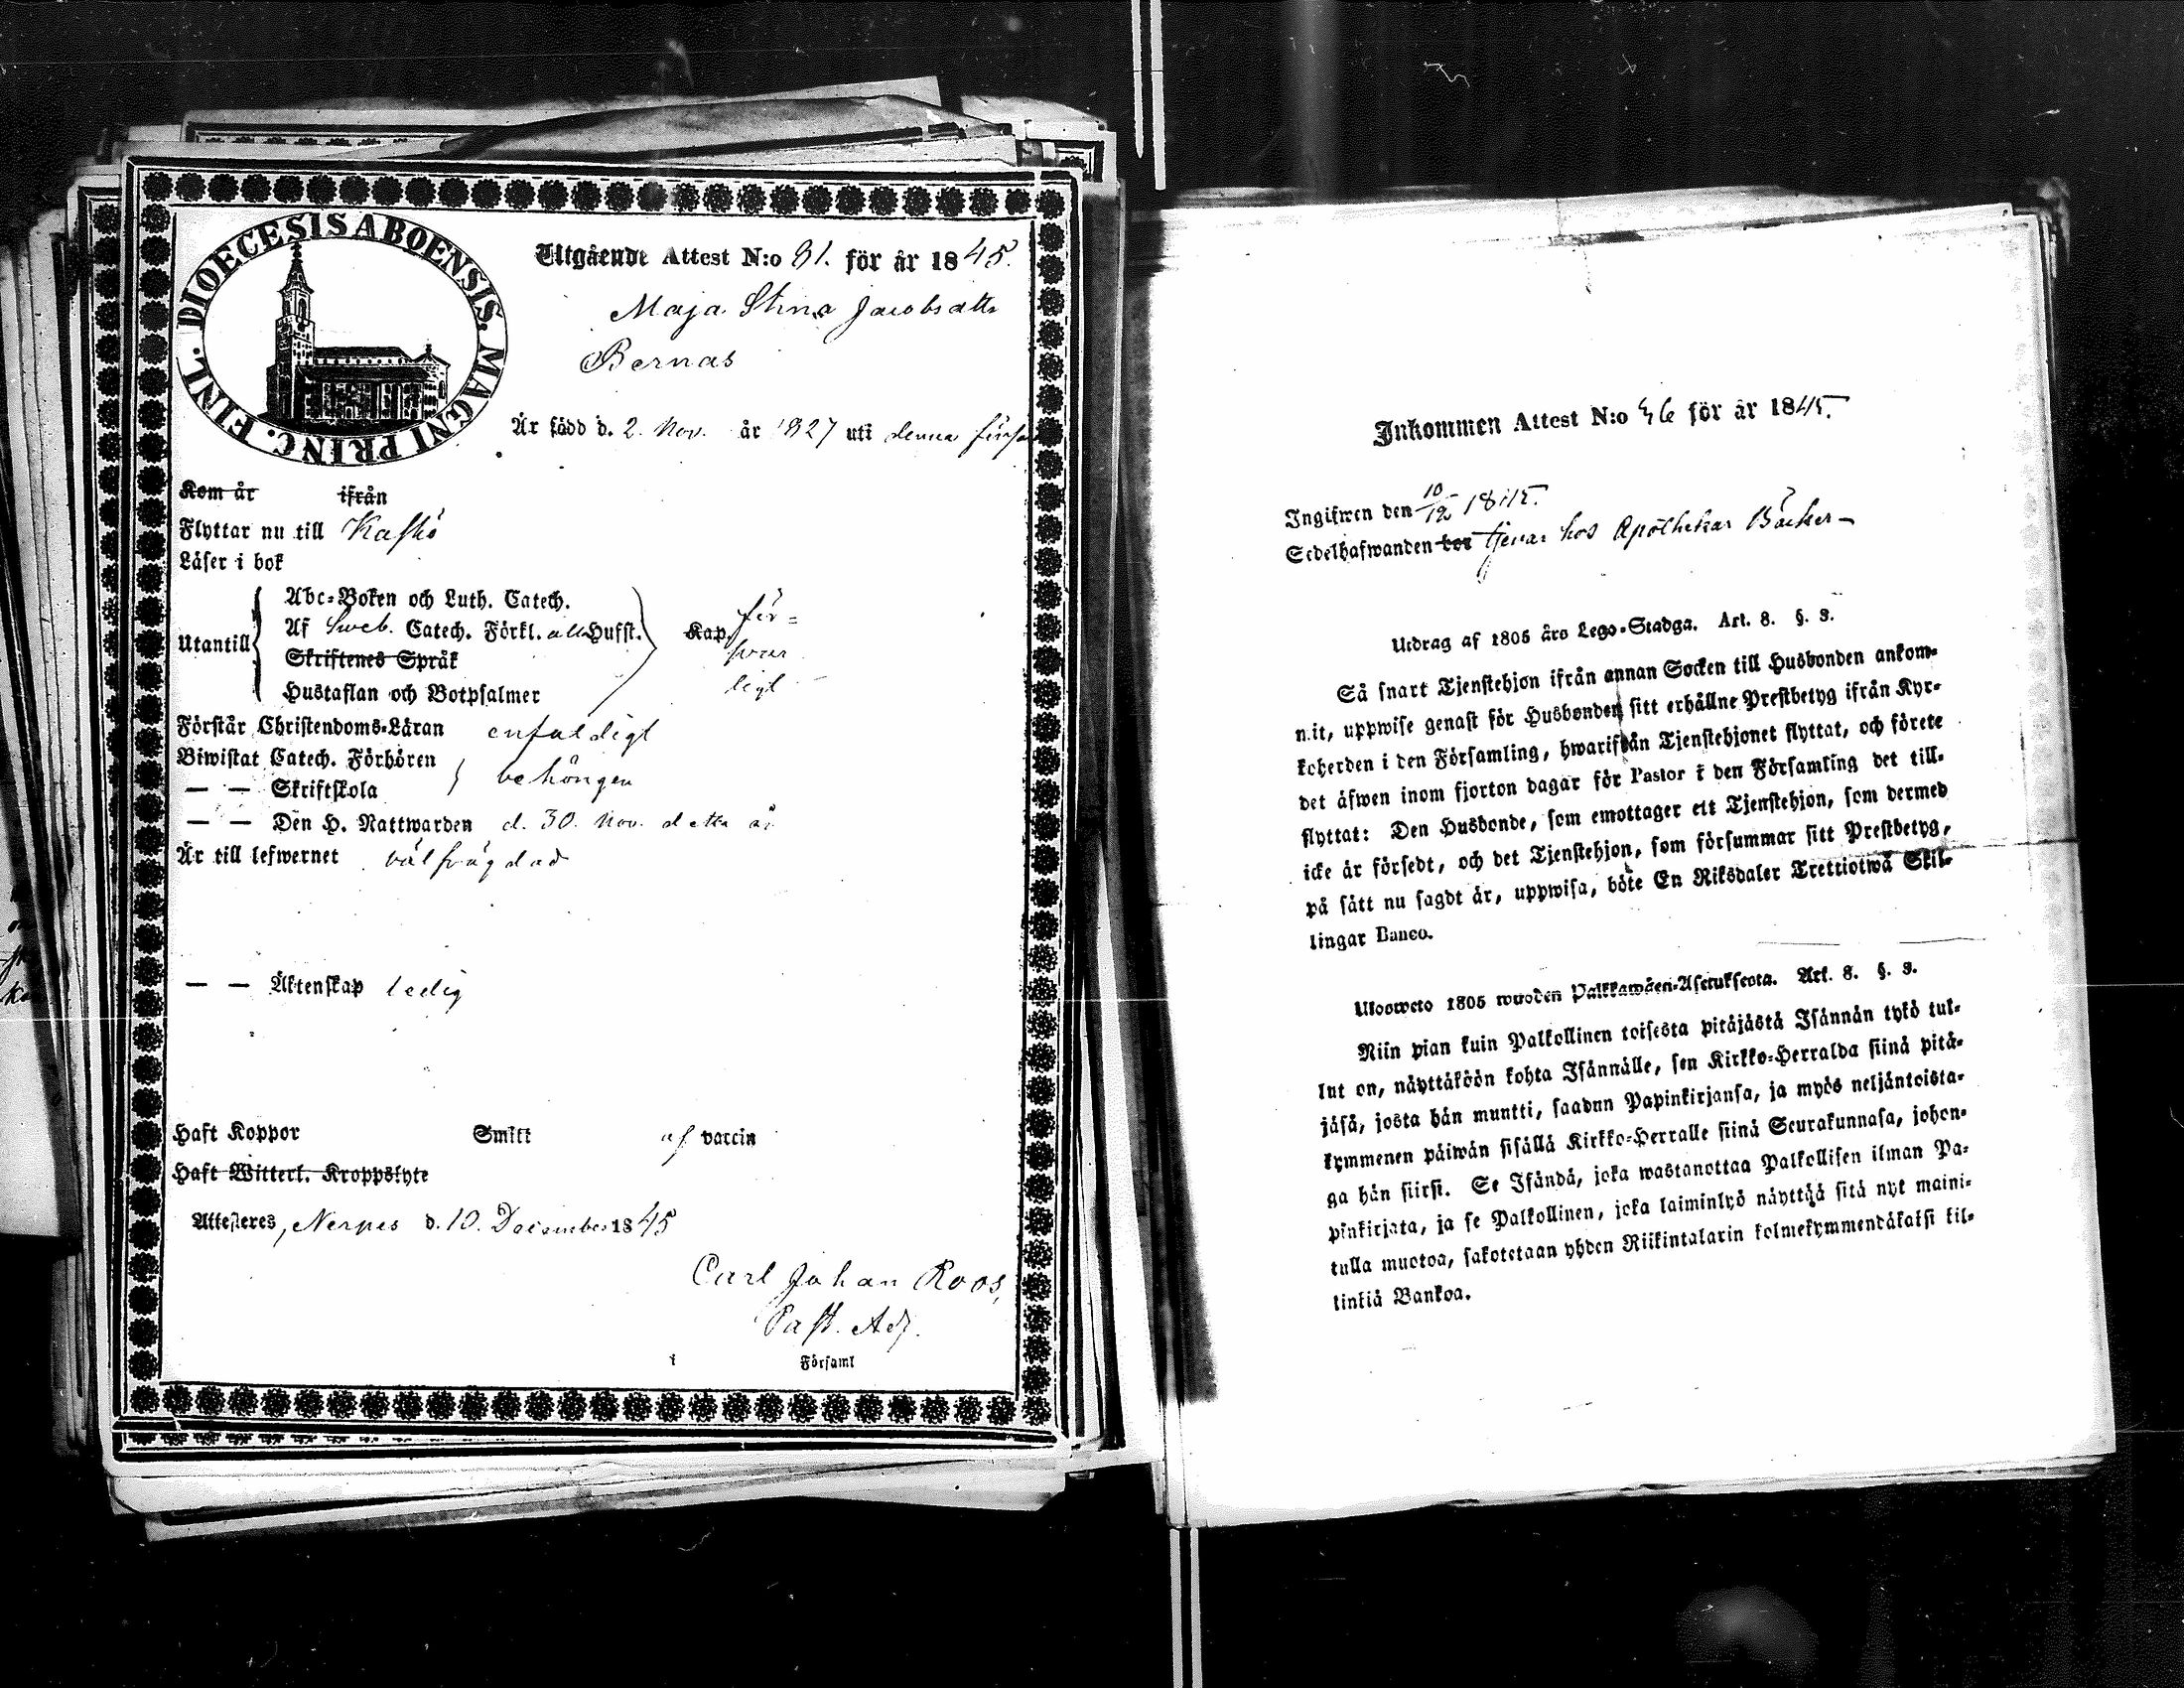 DIOECESIS ABOENSIS. MAGNI PRINC. FINL.
Utgående Attest N:o 81. för år 1845.
Maja Stina Jacobsdttr
Bernas
Är född d. 2. Nov. år 1827 uti denna förs
Kom år ifrån
Flyttar nu till Kaskö
Läser i bok
Utantill
Abc-Boken och Luth. Catech.
Af Sweb. Catech. Förkl. all Husst.
Skriftenes Språk
Hustaflan och Botpsalmer
Kap.
för=
swar
ligt
Förstår Christendoms-Läran enfaldigt
Biwistat Catech. Förhören
— — Skriftskola
behörigen
— — Den H. Nattwarden d. 30. Nov. detta år
Är till lefwernet välfrägdad
— — Äktenskap ledig
Haft Koppor Smitt af vaccin
Haft Witterl. Kroppslyte
Attesteres, Nerpes d. 10. December 1845
Carl Johan Roos,
Past. Adj.
i Församl
Inkommen Attest N:o 36 för år 1845.
Ingifwen den 10/12 1845.
Sedelhafwanden bor tjenar hos Apothekar Bäcker —
Utdrag af 1805 års Lego-Stadga. Art. 8. §. 3.
Så snart Tjenstehjon ifrån annan Socken till Husbonden ankom-
mit, uppwise genast för Husbonden sitt erhållne Prestbetyg ifrån Kyr-
koherden i den Församling, hwarifrån Tjenstehjonet flyttat, och förete
det äfwen inom fjorton dagar för Pastor i den Församling det till-
flyttat: Den Husbonde, som emottager ett Tjenstehjon, som dermed
icke är försedt, och det Tjenstehjon, som försummar sitt Prestbetyg,
på sätt nu sagdt är, uppwisa, böte En Riksdaler Trettiotwå Skil-
lingar Banco.
Uloosweto 1805 wuoden Palkkawäen-Asetuksesta. Art. 8. §. 3.
Niin pian kuin Palkollinen toisesta pitäjästä Isännän tykö tul-
lut on, näyttäköön kohta Isännälle, sen Kirkko-Herralda siinä pitä-
jäsä, josta hän muutti, saadun Papinkirjansa, ja myös neljäntoista-
kymmenen päiwän sisällä Kirkko-Herralle siinä Seurakunnasa, johon-
ga hän siirsi. Se Isändä, joka wastanottaa Palkollisen ilman Pa-
pinkirjata, ja se Palkollinen, joka laiminlyö näyttää sitä nyt maini-
tulla muotoa, sakotetaan yhden Riikintalarin kolmekymmendäkaksi kil-
linkiä Bankoa.